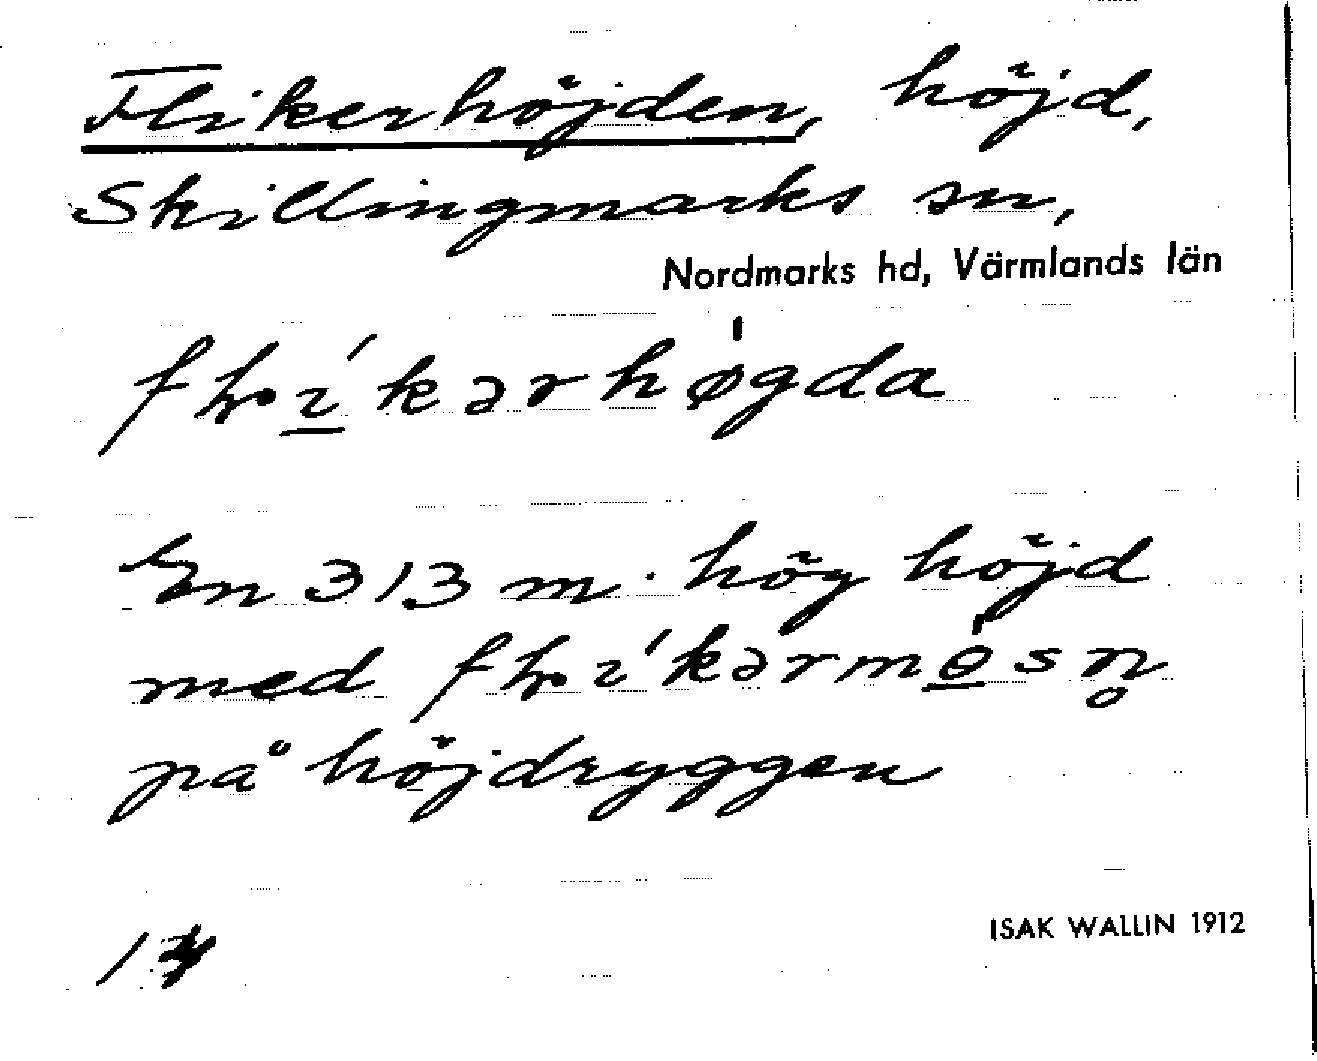 Flikerhöjden, höjd,
Skillingmarks sn,
Nordmarks hd, Värmlands län
En 313 m. hög höjd
med
på höjdryggen
ISAK WALLIN 1912